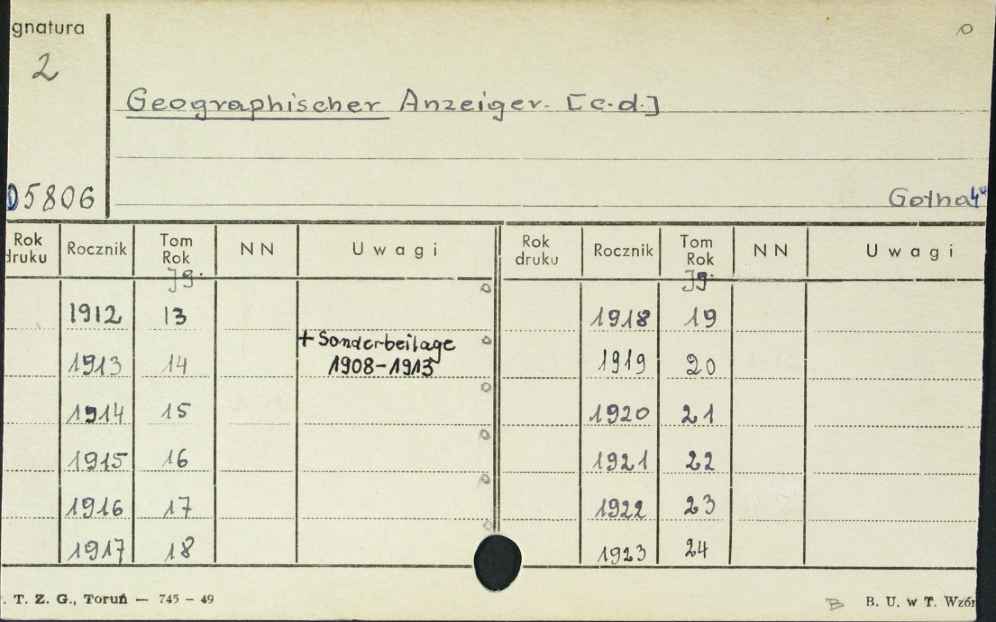 gnatura
2
05806
Geographischer Anzeiger. [c.d.]
Gotha 4°
Rok druku Rocznik Tom Rok NN Uwagi Rok druku Rocznik Tom Rok NN Uwagi
Jg. Jg.
1912 13 1918 19
+ Sonderbeilage
1913 14 1908-1913 1919 20
1914 15 1920 21
1915 16 1921 22
1916 17 1922 23
1917 18 1923 24
. T. Z. G., Toruń — 745 - 49 B B. U. w T. Wzór